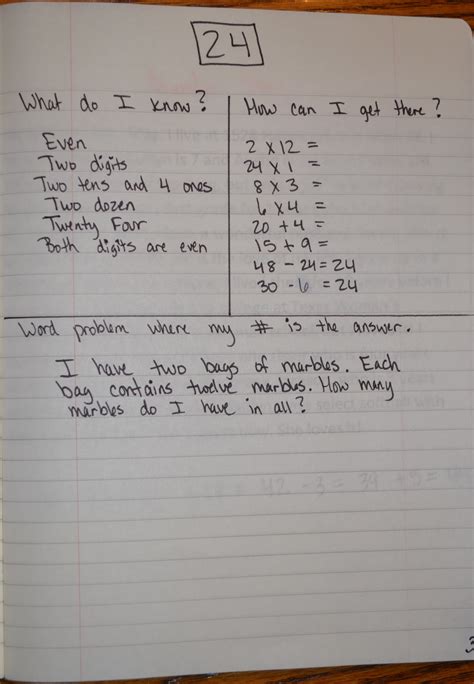 24
What do I know?
Even
Two digits
Two tens and 4 ones
Two dozen
Twenty Four
Both digits are even
How can I get there?
2 x 12 =
24 x 1 =
8 x 3 =
6 x 4 =
20 + 4 =
15 + 9 =
48 - 24 = 24
30 - 6 = 24
Word problem where my # is the answer.
I have two bags of marbles. Each
bag contains twelve marbles. How many
marbles do I have in all?
3